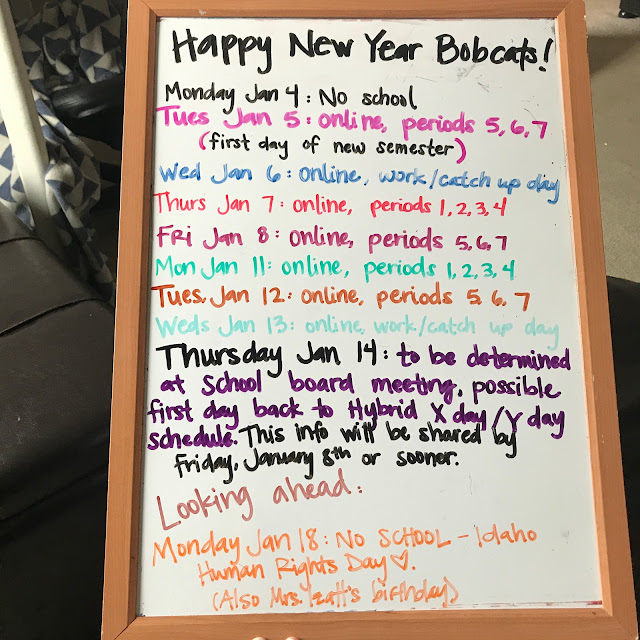 Happy New Year Bobcats!
Monday Jan 4: No school
Tues Jan 5: online, periods 5, 6, 7
(first day of new semester)
Wed Jan 6: online, work/catch up day
Thurs Jan 7: online, periods 1, 2, 3, 4
Fri Jan 8: online, periods 5, 6, 7
Mon Jan 11: online, periods 1, 2, 3, 4
Tues. Jan 12: online, periods 5, 6, 7
Weds Jan 13: online, work/catch up day
Thursday Jan 14: to be determined
at School board meeting, possible
first day back to Hybrid X day/Y day
schedule. This info will be shared by
Friday, January 8th or sooner.
Looking ahead:
Monday Jan 18: NO SCHOOL - Idaho
Human Rights Day ♡.
(Also Mrs. Izatt's birthday)